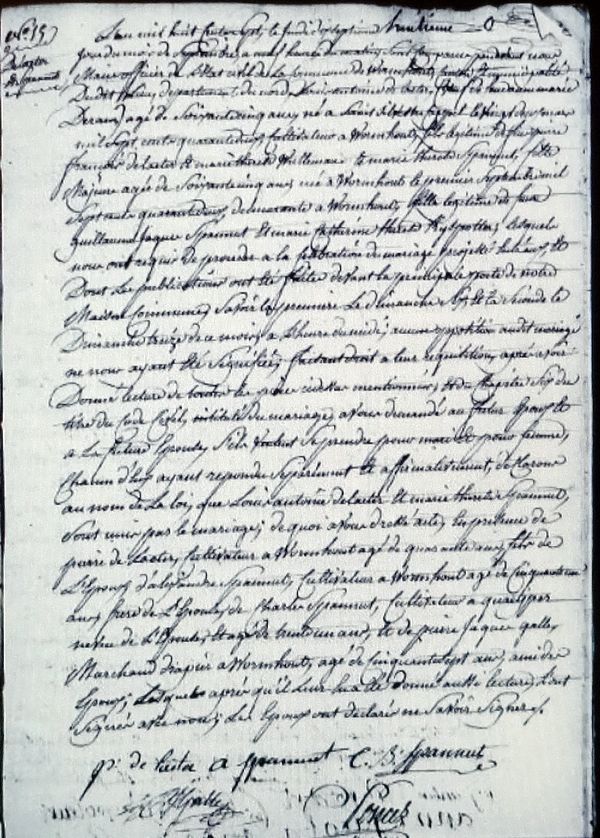 L'an mil huit cent sept, le jeudi dixseptieme
jour du mois de septembre a neuf heures du matin, sont comparus pardevant nous
Maire officier de l'Etat civil de la Commune de Wormhout, canton et municipalité
dudit lieu, departement du nord, Louis antoine de laeter, veuf de marie
agé de Soixante cinq ans, né a le vingt de mars
mil Sept cent quarante deux, Cultivateur a Wormhout, fils legitime de feu pierre
francois de laeter et marie therese et marie therese Spannut, fille
Majeure agée de Soixante cinq ans née a Wormhout le premier Septembre mil
Sept cent quarante deux, demeurante a Wormhout, fille legitime de feu
guillaume Jaque Spannut et marie Catherine therese lesquels
nous ont requis de proceder a la celebration du mariage projetté entre eux, et
Dont les publications ont été faites devant la principale porte de notre
Maison Commune, Savoir la premiere le dimanche Six et la Seconde le
Dimanche treize de ce mois, a l'heure de midi, aucune opposition audit mariage
ne nous ayant été Signifiée, faisant droit a leur requisition, après avoir
Donné lecture de toutes les pieces cidessus mentionnées, et du Chapitre Six du
titre du Code Civil, intitulé du mariage, avons demandé au futur Epoux et
a la future Epouse, S'ils veulent Se prendre pour mari et pour femme,
Chacun d'eux ayant repondu Separément et affirmativement, declarons
au nom de la loi, que Louis antoine de laeter et marie therese Spannut,
Sont unis par le mariage; de quoi avons dressé acte, En presence de
pierre de laeter, Cultivateur a Wormhout agé de quarante ans, fils de
L'Epoux, d'alexandre Spannut, Cultivateur a Wormhout agé de Cinquante un
ans, frere de L'Epouse, de Charles Spannut, Cultivateur a
neveu de L'Epouse, agé de trente un ans, et de pierre Jaque galle,
Marchand drapier a Wormhout, agé de cinquante sept ans, ami des
Epoux; Lesquels après qu'il leur en a été donné aussi lecture, l'ont
Signée avec nous; Les Epoux ont declaré ne Savoir Signer.
p. de laeter a Spannut C. B. Spannut
P J galle